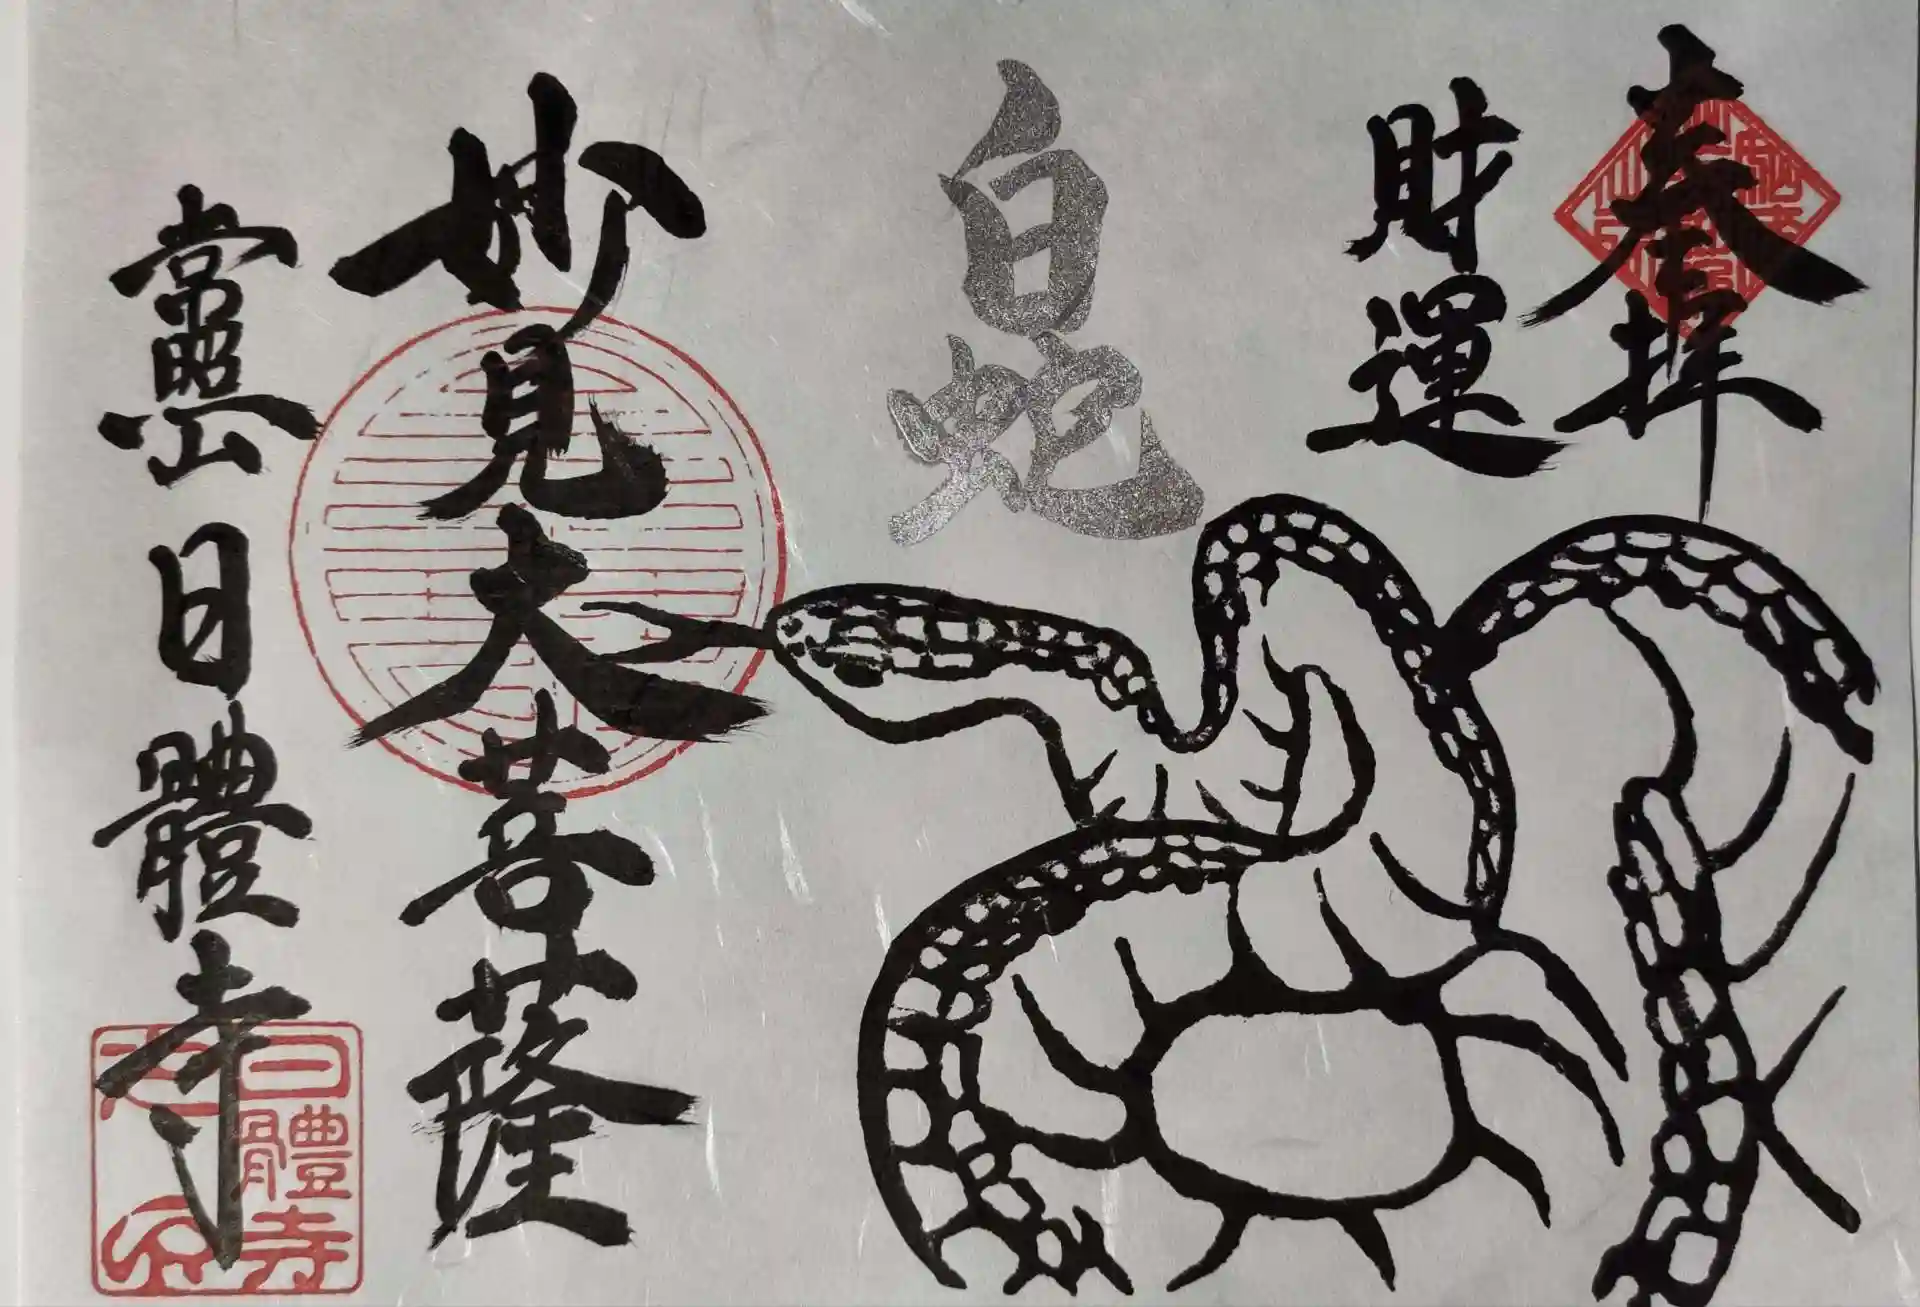 奉拝
財運
白蛇
妙見大菩薩
常照山
日體寺
日體寺